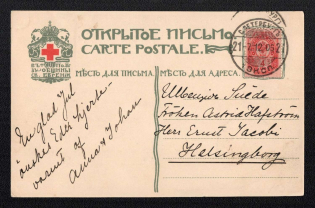 ОТКРЫТОЕ ПИСЬМО
CARTE POSTALE.
МѢСТО ДЛЯ ПИСЬМА.
МѢСТО ДЛЯ АДРЕСА.
En glad Jul
önskes Eder hjerte-
varmt af
Anna & Johan
Швецiя Suède
Fröken Astrid Hafström
Herr Ernst Jacobi
Helsingborg